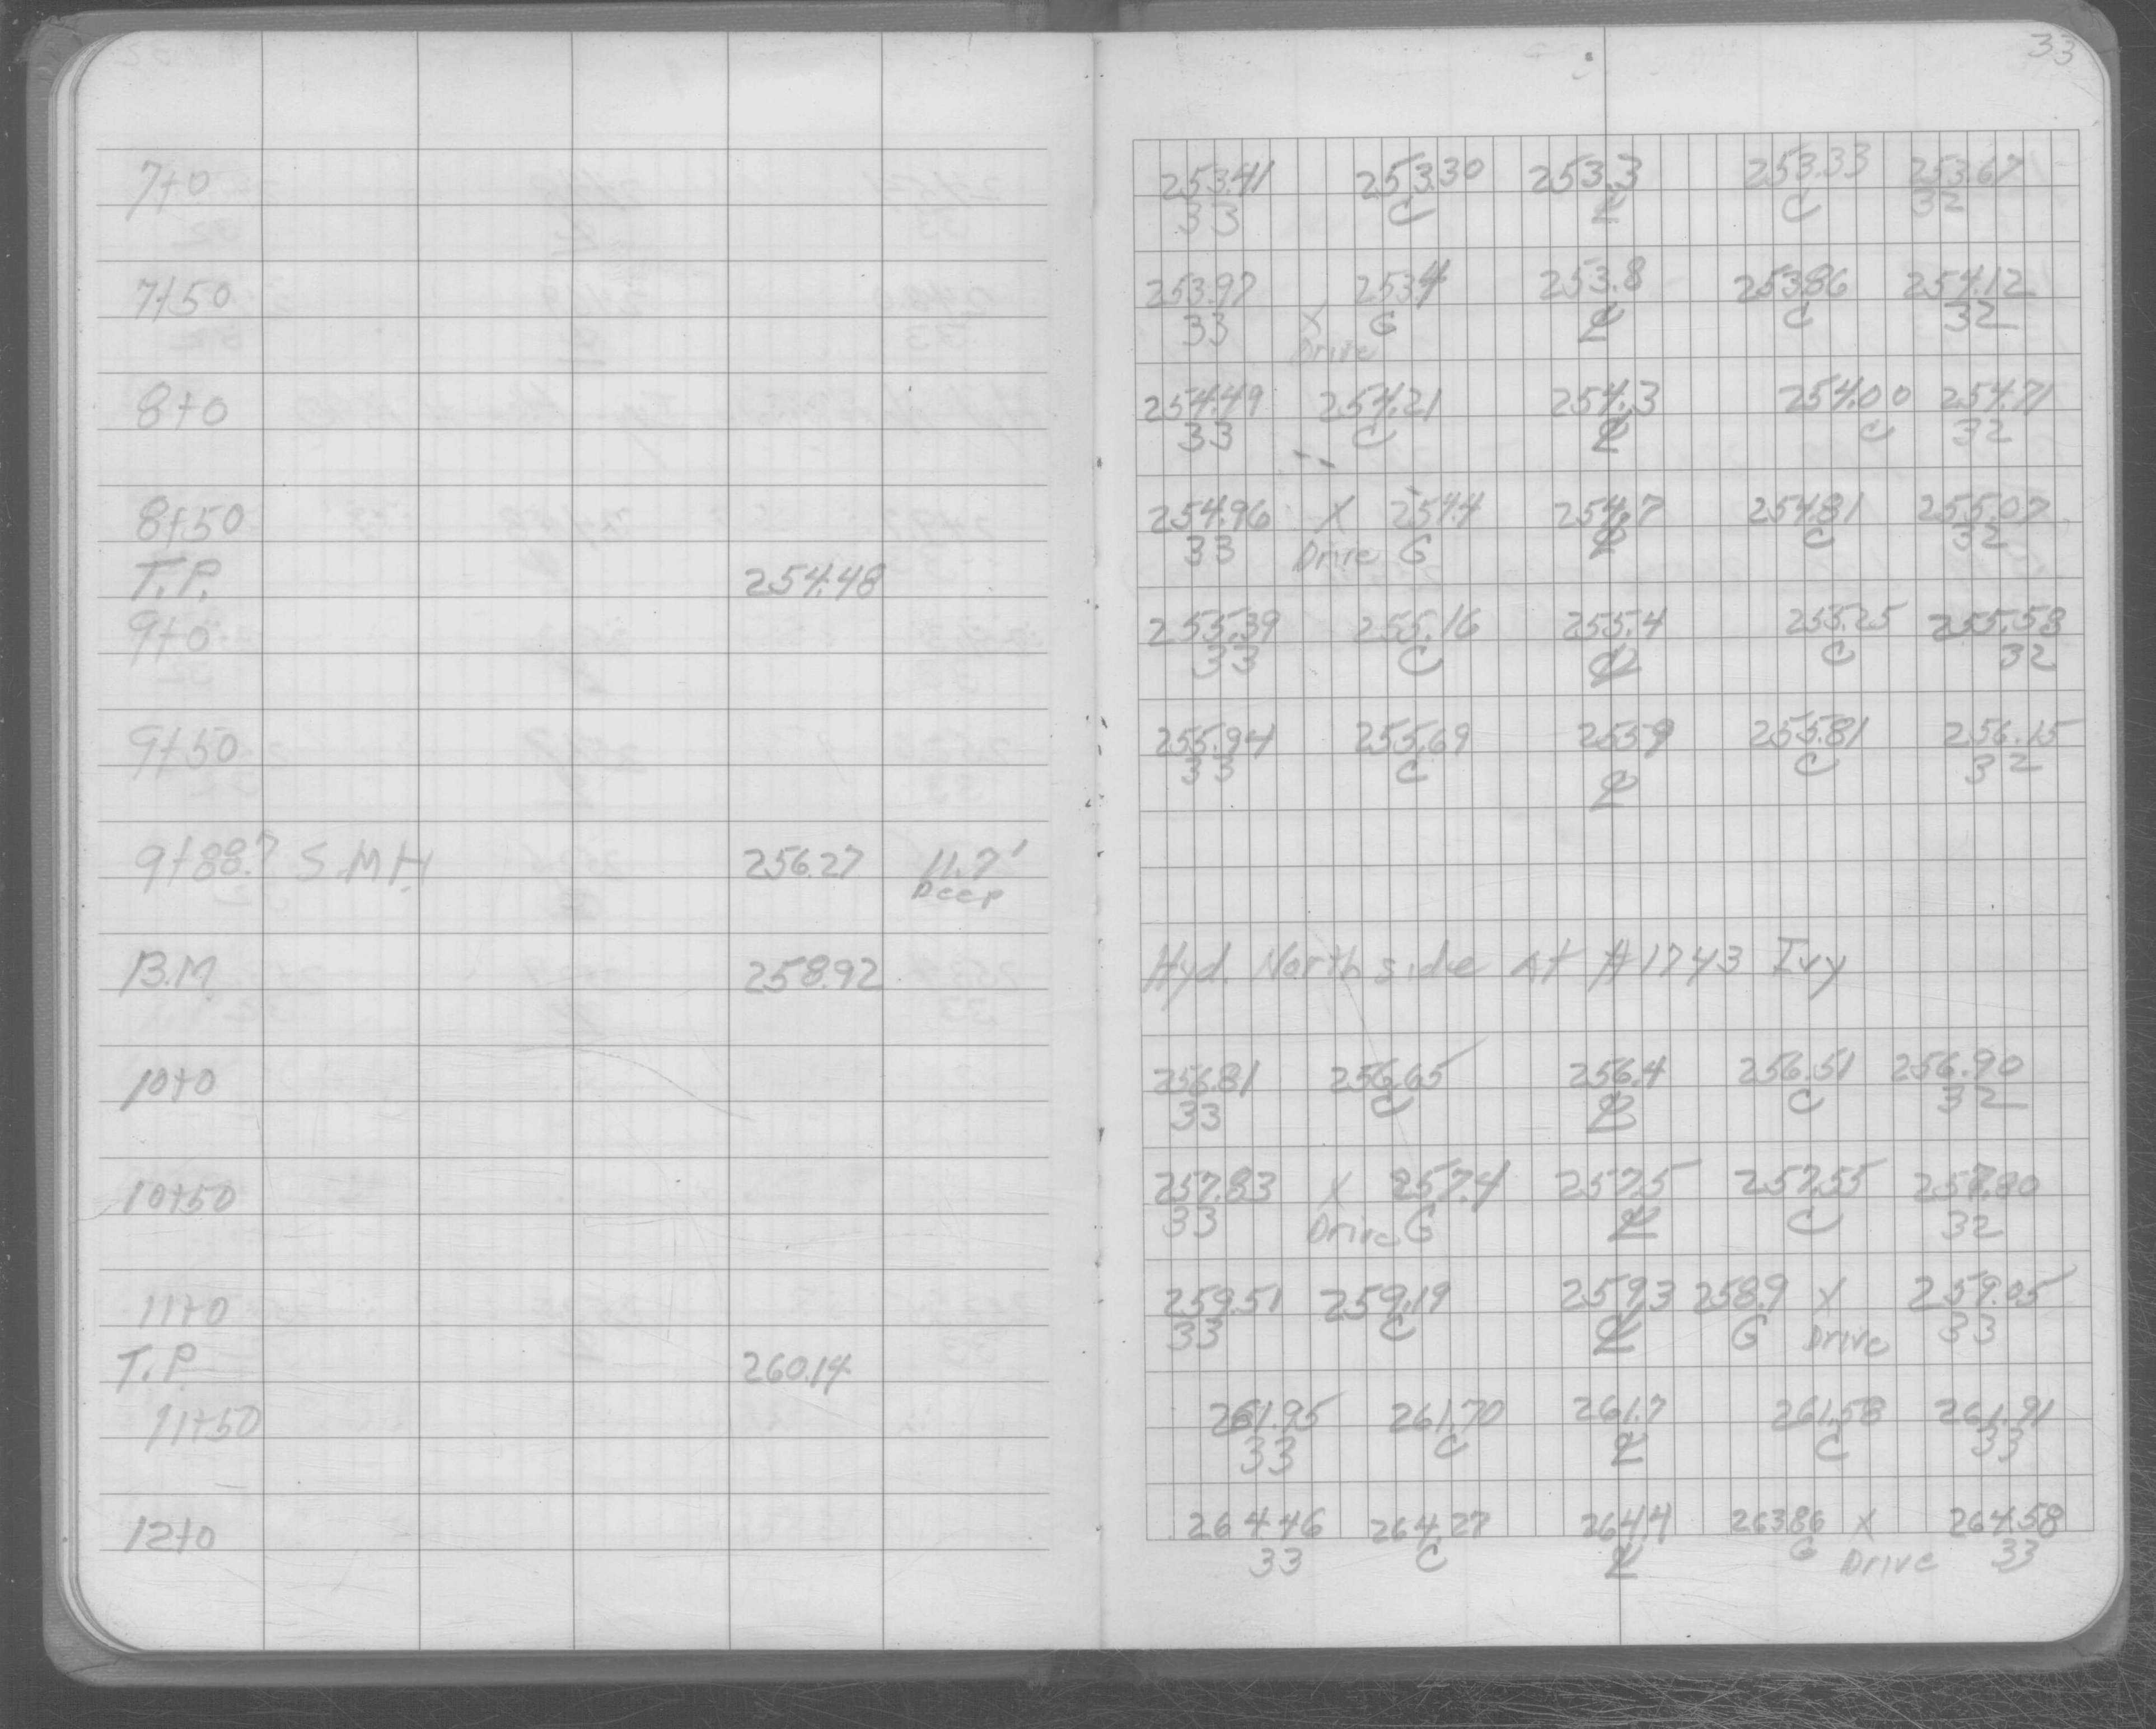 33
7+0 253.41 253.30 253.3 253.33 253.67
33 C ℄ C 32
7+50 253.97 253.4 253.8 253.86 254.12
33 X G ℄ C 32
Drive
8+0 254.49 254.21 254.3 254.00 254.71
33 C ℄ C 32
8+50 254.96 X 254.4 254.7 254.81 255.07
33 Drive G ℄ C 32
T.P. 254.48
9+0 255.39 255.16 255.4 255.25 255.58
33 C ℄ C 32
9+50 255.94 255.69 255.9 255.81 256.15
33 C ℄ C 32
9+88.7 S.M.H. 256.27 11.7'
Deep
B.M. 258.92 Hyd. North side at #1743 Ivy
10+0 256.81 256.65 256.4 256.51 256.90
33 C ℄ C 32
10+50 257.83 X 257.4 257.5 257.55 257.80
33 Drive G ℄ C 32
11+0 259.51 259.19 259.3 258.9 X 259.05
33 C ℄ G Drive 33
T.P. 260.14
11+50 261.95 261.70 261.7 261.58 261.91
33 C ℄ C 33
12+0 264.46 264.27 264.4 263.86 X 264.58
33 C ℄ G Drive 33